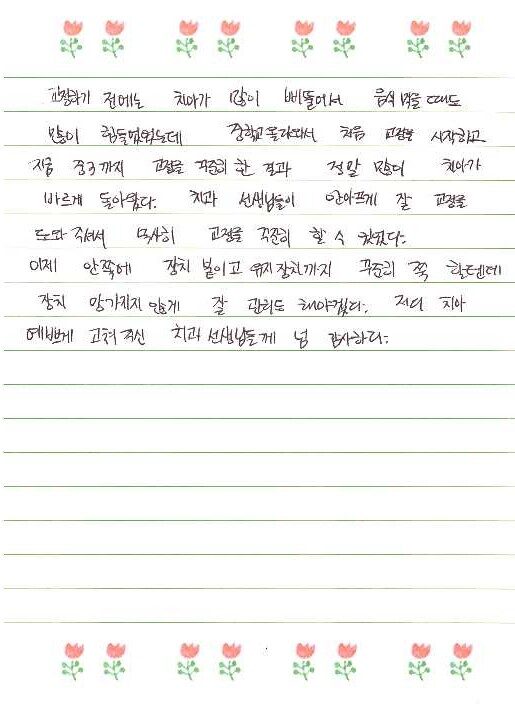 교정하기 전에는 치아가 많이 삐뚤어서 음식 먹을 때도
많이 힘들었었는데 중학교 올라와서 처음 교정을 시작하고
지금 중3까지 교정을 꾸준히 한 결과 정말 많이 치아가
바르게 돌아왔다. 치과 선생님들이 안아프게 잘 교정을
도와 주셔서 무사히 교정을 꾸준히 할 수 있었다.
이제 안쪽에 장치 붙이고 유지장치까지 꾸준히 쭉 할텐데
장치 망가지지 않게 잘 관리도 해야겠다. 저의 치아
예쁘게 고쳐 주신 치과 선생님들께 넘 감사하다.